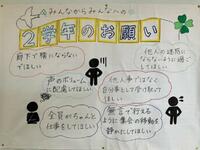 みんなからみんなへの
2学年のお願い
廊下で横にならない
でほしい
他人の迷惑に
ならないように過ごして
ほしい
声のボリューム
に配慮してほしい
他人事ではなく
自分事として学り取って
ほしい
全員がちゃんと
仕事をしてほしい
無言で行える
ように集会の移動を
静かにしてほしい